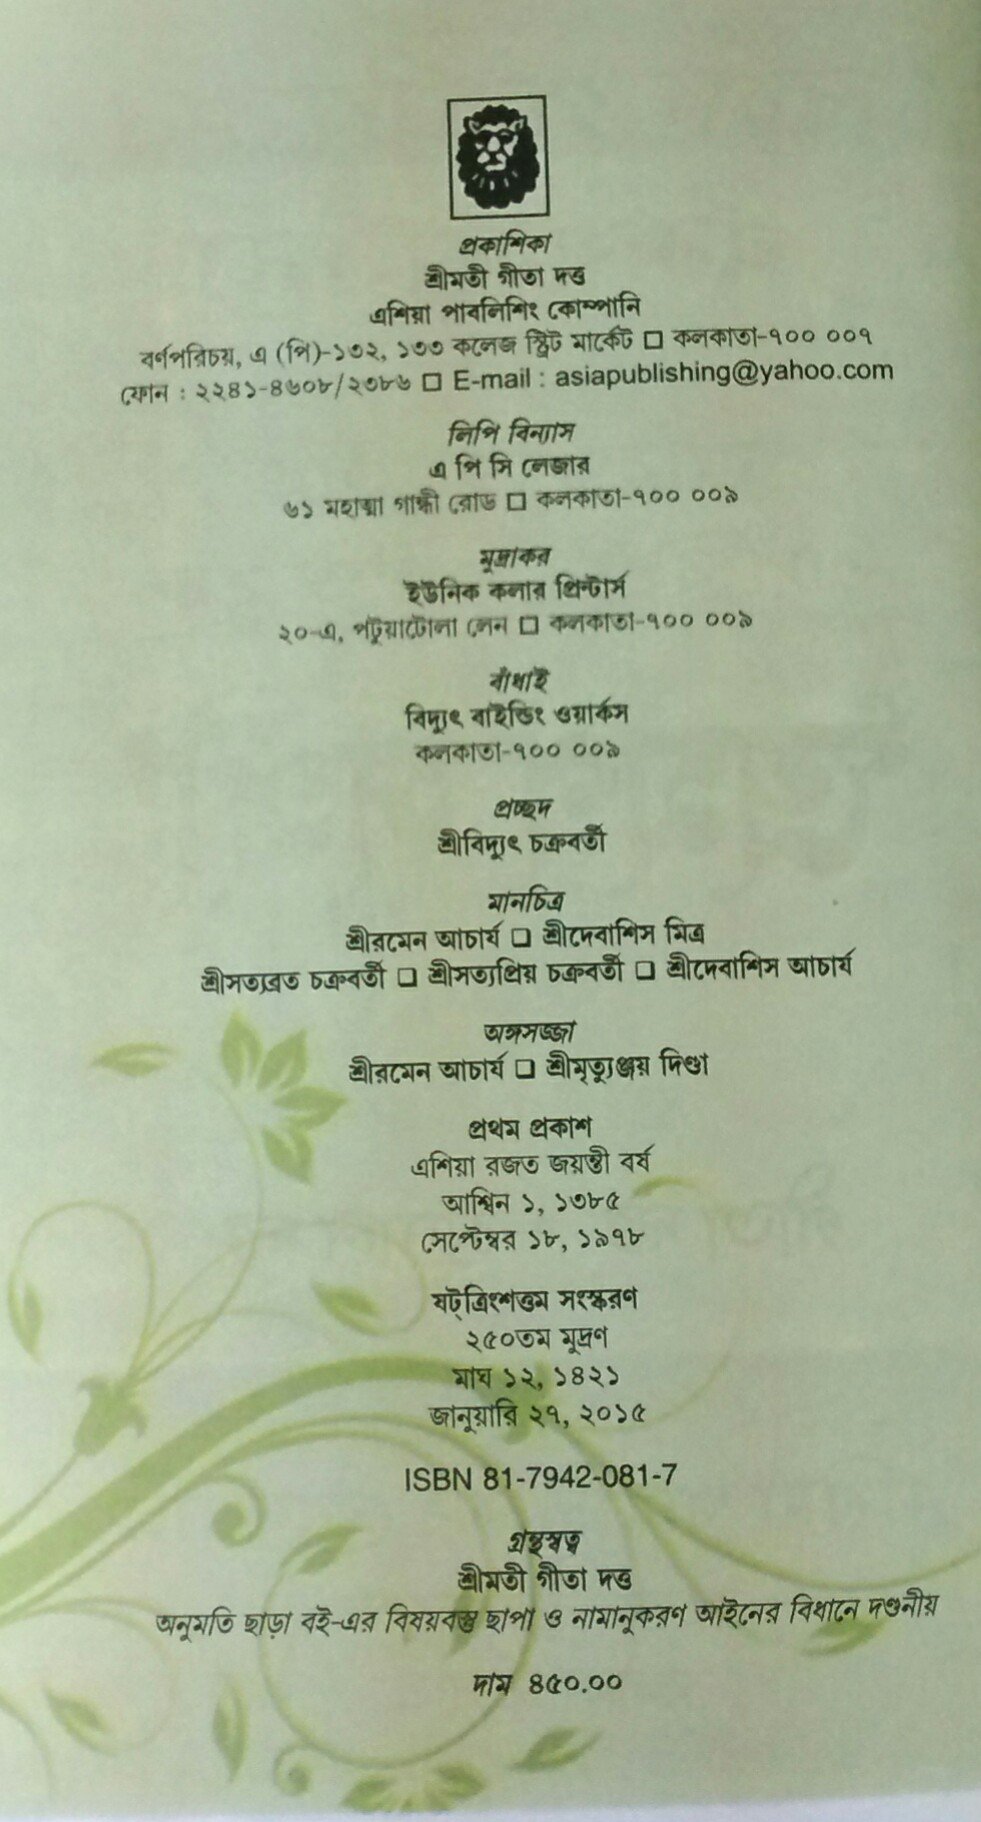 প্রকাশিকা
শ্রীমতী গীতা দত্ত
এশিয়া পাবলিশিং কোম্পানি
বর্ণপরিচয়, এ (পি)-১৩২, ১৩৩ কলেজ স্ট্রিট মার্কেট □ কলকাতা-৭০০ ০০৭
ফোন : ২২৪১-৪৬০৮/২৩৮৬ □ E-mail : asiapublishing@yahoo.com
লিপি বিন্যাস
এ পি সি লেজার
৬১ মহাত্মা গান্ধী রোড □ কলকাতা-৭০০ ০০৯
মুদ্রাকর
ইউনিক কলার প্রিন্টার্স
২০-এ, পটুয়াটোলা লেন □ কলকাতা-৭০০ ০০৯
বাঁধাই
বিদ্যুৎ বাইন্ডিং ওয়ার্কস
কলকাতা-৭০০ ০০৯
প্রচ্ছদ
শ্রীবিদ্যুৎ চক্রবর্তী
মানচিত্র
শ্রীরমেন আচার্য □ শ্রীদেবাশিস মিত্র
শ্রীসত্যব্রত চক্রবর্তী □ শ্রীসত্যপ্রিয় চক্রবর্তী □ শ্রীদেবাশিস আচার্য
অঙ্গসজ্জা
শ্রীরমেন আচার্য □ শ্রীমৃত্যুঞ্জয় দিণ্ডা
প্রথম প্রকাশ
এশিয়া রজত জয়ন্তী বর্ষ
আশ্বিন ১, ১৩৮৫
সেপ্টেম্বর ১৮, ১৯৭৮
ষট্‌ত্রিংশত্তম সংস্করণ
২৫০তম মুদ্রণ
মাঘ ১২, ১৪২১
জানুয়ারি ২৭, ২০১৫
ISBN 81-7942-081-7
গ্রন্থস্বত্ব
শ্রীমতী গীতা দত্ত
অনুমতি ছাড়া বই-এর বিষয়বস্তু ছাপা ও নামানুকরণ আইনের বিধানে দণ্ডনীয়
দাম ৪৫০.০০